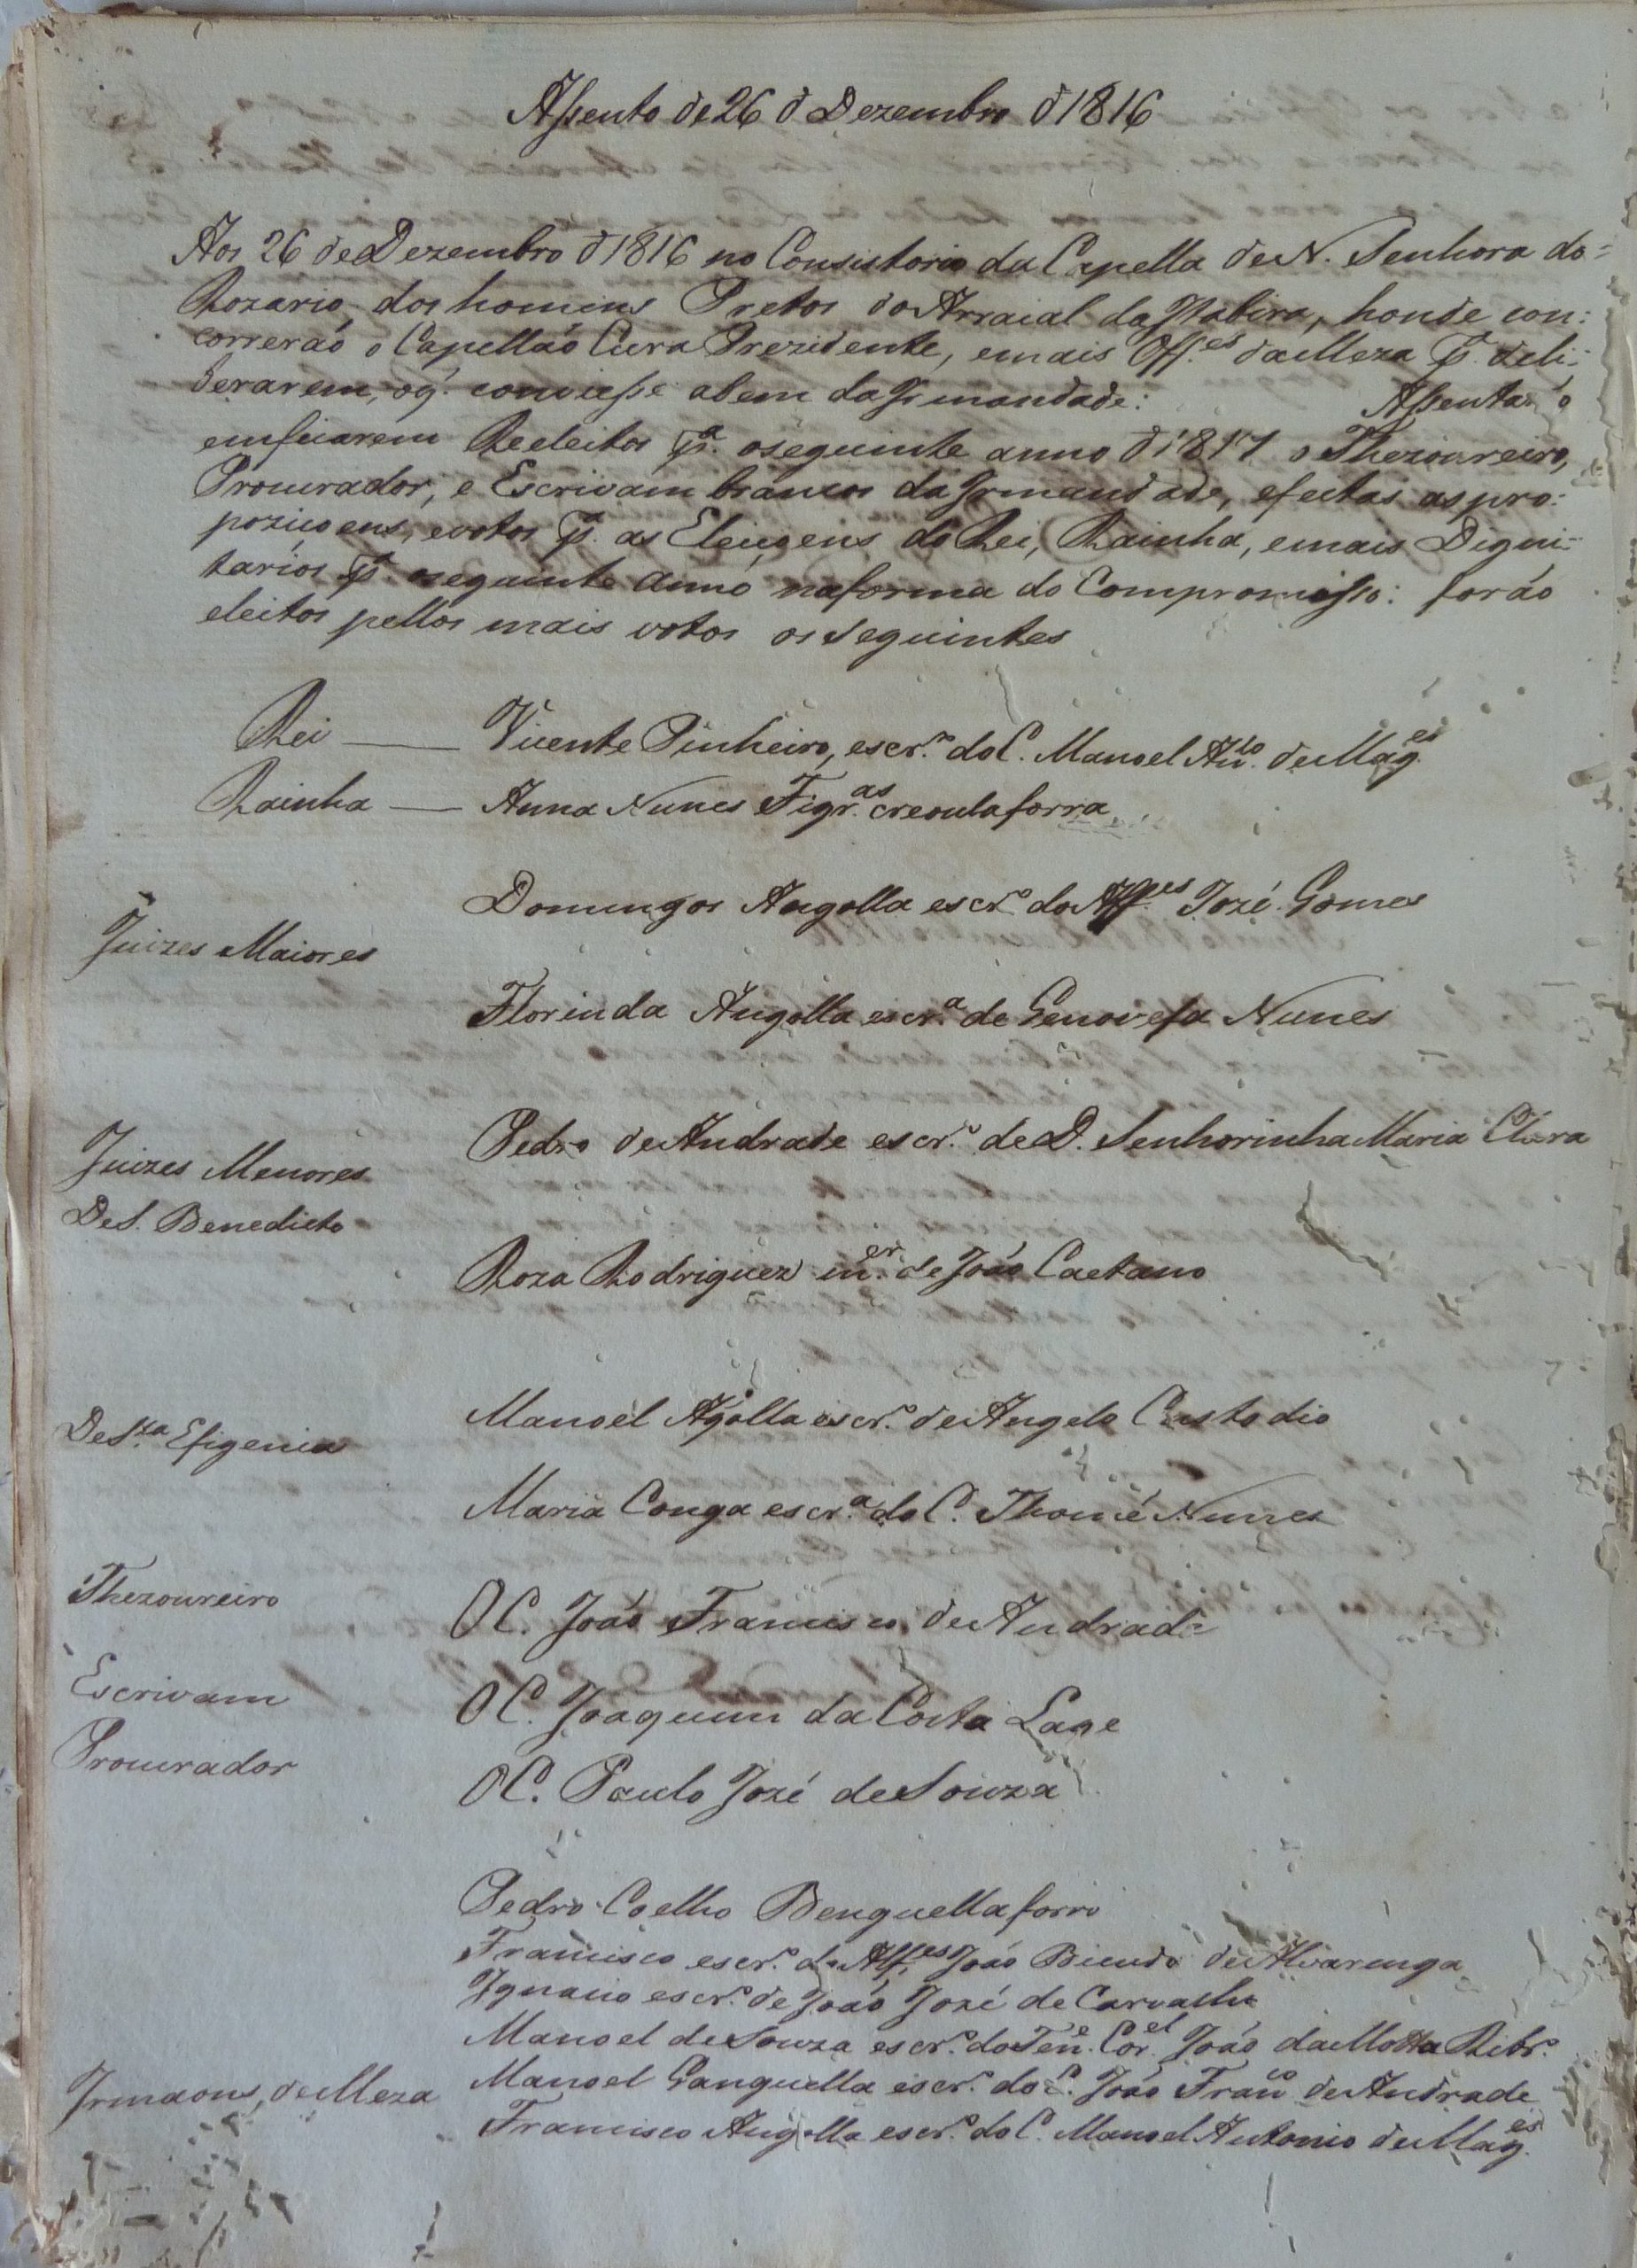 Assento de 26 d Dezembro d 1816
Aos 26 de Dezembro d 1816 no Consistorio da Capella de N. Senhora do=
Rozario dos homens Pretos do Arraial da Itabira, honde con:
correrão o Capellão Cura Prezidente, e mais Off.es da Meza p.a deli:
berarem, o q. conviesse a bem da Irmandade: Assentarão
em ficarem Reeleitos p.a o seguinte anno d 1817 o Thezoureiro,
Procurador, e Escrivam brancos da Irmandade, e feitas as pro:
poziçoens, e votos p.a as Eleiçoens do Rei, Rainha, e mais Digni:
tarios p.a o seguinte anno na forma do Compromisso: forão
eleitos pellos mais votos os seguintes
Rei — Vicente Pinheiro, escr.o do C. Manoel An.to de Mag.es
Rainha — Anna Nunes Figr.as creoula forra
Domingos Angolla escr.o do Alf.es Jozé Gomes
Juizes Maiores
Florinda Angolla escr.a de Genovefa Nunes
Pedro de Andrade escr.o de D. Senhorinha Maria Clara
Juizes Menores
De S. Benedicto
Roza Rodriguez m.er de João Caetano
Manoel Agolla escr.o de Angelo Custodio
De S.ta Efigenia
Maria Conga escr.a do C. Thomé Nunes
Thezoureiro O C. João Francisco de Andrade
Escrivam O C. Joaquim da Costa Lage
Procurador O C. Paulo Jozé de Souza
Pedro Coelho Benguella forro
Francisco escr.o do Alf.es João Bicudo de Alvarenga
Ignacio escr.o de João Jozé de Carvalho
Manoel de Souza escr.o do Ten.e Cor.el João da Motta Ribr.o
Irmaons de Meza Manoel Ganguella escr.o do C. João Fran.co de Andrade
Francisco Angolla escr.o do C. Manoel Antonio de Mag.es